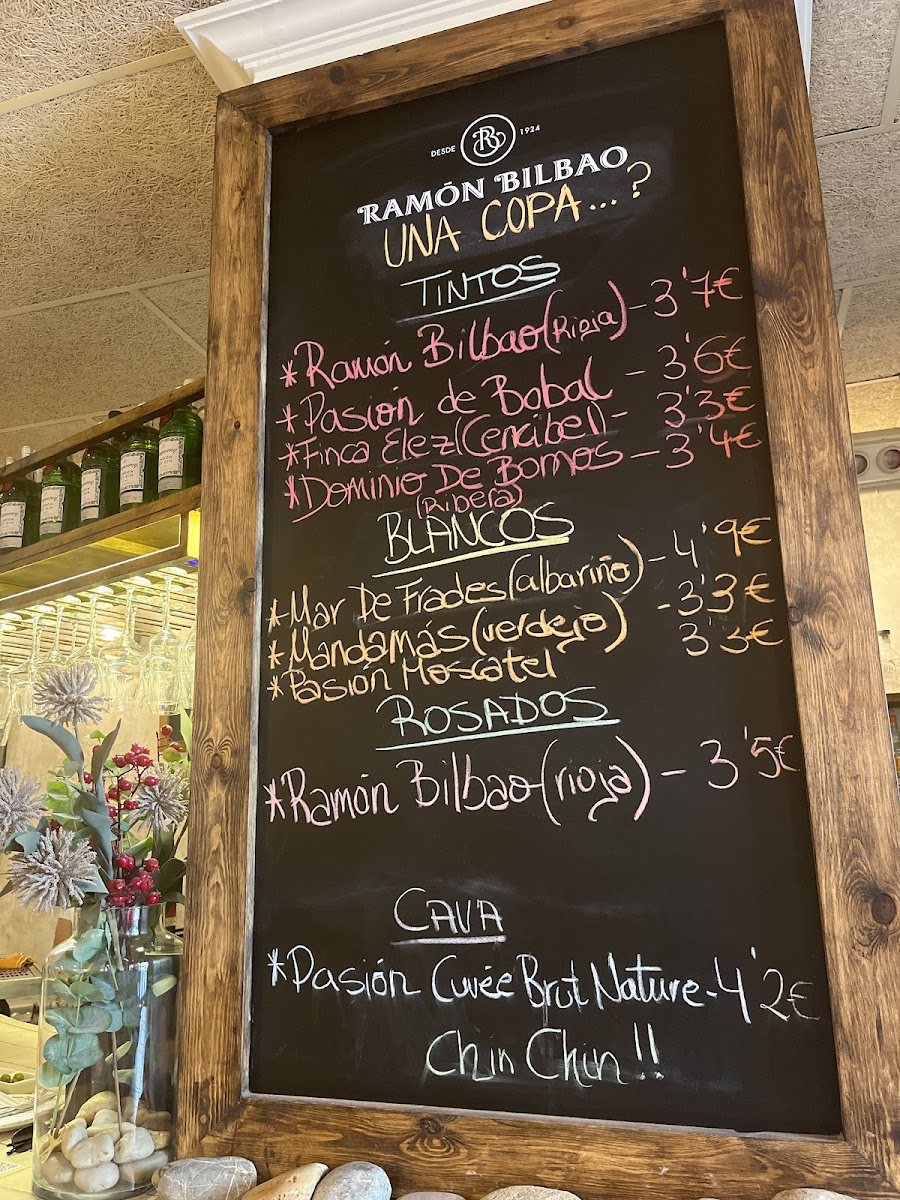 DESDE 1924
RAMÓN BILBAO
UNA COPA...?
TINTOS
*Ramón Bilbao(Rioja) - 3'7€
*Pasión de Bobal - 3'6€
*Finca Elez(Cencibel) - 3'3€
*Dominio De Bornos - 3'4€
(Ribera)
BLANCOS
*Mar De Frades(albariño) - 4'9€
*Mandamás(verdejo) - 3'3€
*Pasión Moscatel 3'3€
ROSADOS
*Ramón Bilbao(rioja) - 3'5€
CAVA
*Pasión Cuvée Brut Nature - 4'2€
Chin Chin!!